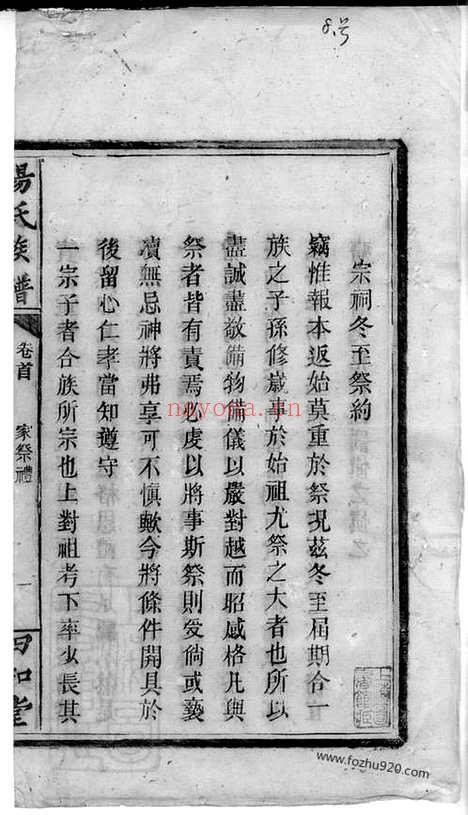 8.号
宗祠冬至祭約
竊惟報本返始莫重於祭況茲冬至屆期合一
族之子孫修歲事於始祖尤祭之大者也所以
盡誠盡敬備物備儀以嚴對越而昭感格凡與
祭者皆有責焉必虔以將事斯祭則受倘或褻
凟無忌神將弗享可不慎歟今將條件開具於
後留心仁孝當知遵守
一宗子者合族所宗也上對祖考下率少長其
氏族譜
卷首
家祭禮
一
堂
nayona.cn
www.fozhu920.com